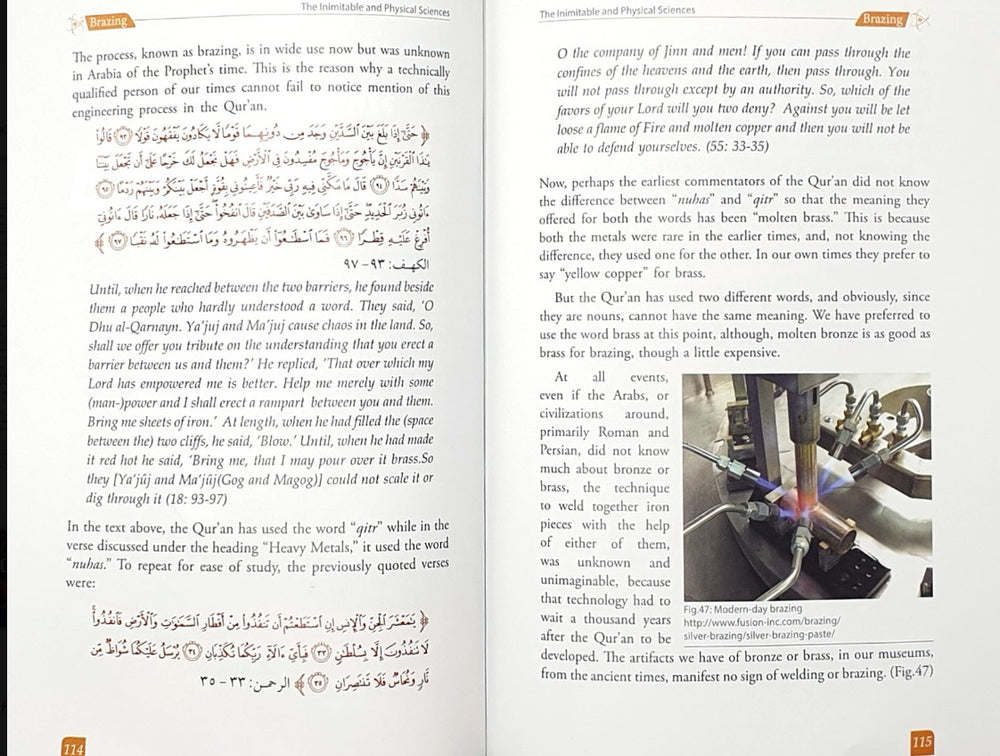 The Inimitable and Physical Sciences
Brazing
The process, known as brazing, is in wide use now but was unknown
in Arabia of the Prophet's time. This is the reason why a technically
qualified person of our times cannot fail to notice mention of this
engineering process in the Qur'an.
﴿ حَتَّىٰٓ إِذَا بَلَغَ بَيْنَ ٱلسَّدَّيْنِ وَجَدَ مِن دُونِهِمَا قَوْمًا لَّا يَكَادُونَ يَفْقَهُونَ قَوْلًا ٩٣ قَالُوا۟
يَٰذَا ٱلْقَرْنَيْنِ إِنَّ يَأْجُوجَ وَمَأْجُوجَ مُفْسِدُونَ فِى ٱلْأَرْضِ فَهَلْ نَجْعَلُ لَكَ خَرْجًا عَلَىٰٓ أَن تَجْعَلَ بَيْنَنَا
وَبَيْنَهُمْ سَدًّا ٩٤ قَالَ مَا مَكَّنِّى فِيهِ رَبِّى خَيْرٌ فَأَعِينُونِى بِقُوَّةٍ أَجْعَلْ بَيْنَكُمْ وَبَيْنَهُمْ رَدْمًا ٩٥
ءَاتُونِى زُبَرَ ٱلْحَدِيدِ حَتَّىٰٓ إِذَا سَاوَىٰ بَيْنَ ٱلصَّدَفَيْنِ قَالَ ٱنفُخُوا۟ حَتَّىٰٓ إِذَا جَعَلَهُۥ نَارًا قَالَ ءَاتُونِىٓ
أُفْرِغْ عَلَيْهِ قِطْرًا ٩٦ فَمَا ٱسْطَٰعُوٓا۟ أَن يَظْهَرُوهُ وَمَا ٱسْتَطَٰعُوا۟ لَهُۥ نَقْبًا ٩٧ ﴾
الكهف: ٩٣- ٩٧
Until, when he reached between the two barriers, he found beside
them a people who hardly understood a word. They said, 'O
Dhu al-Qarnayn. Ya'juj and Ma'juj cause chaos in the land. So,
shall we offer you tribute on the understanding that you erect a
barrier between us and them?' He replied, 'That over which my
Lord has empowered me is better. Help me merely with some
(man-)power and I shall erect a rampart between you and them.
Bring me sheets of iron.' At length, when he had filled the (space
between the) two cliffs, he said, 'Blow.' Until, when he had made
it red hot he said, 'Bring me, that I may pour over it brass.So
they [Ya'jûj and Ma'jûj(Gog and Magog)] could not scale it or
dig through it (18: 93-97)
In the text above, the Qur'an has used the word "qitr" while in the
verse discussed under the heading "Heavy Metals," it used the word
"nuhas." To repeat for ease of study, the previously quoted verses
were:
﴿ يَٰمَعْشَرَ ٱلْجِنِّ وَٱلْإِنسِ إِنِ ٱسْتَطَعْتُمْ أَن تَنفُذُوا۟ مِنْ أَقْطَارِ ٱلسَّمَٰوَٰتِ وَٱلْأَرْضِ فَٱنفُذُوا۟ۚ
لَا تَنفُذُونَ إِلَّا بِسُلْطَٰنٍ ٣٣ فَبِأَىِّ ءَالَآءِ رَبِّكُمَا تُكَذِّبَانِ ٣٤ يُرْسَلُ عَلَيْكُمَا شُوَاظٌ مِّن
نَّارٍ وَنُحَاسٌ فَلَا تَنتَصِرَانِ ٣٥ ﴾ الرحمن: ٣٣ - ٣٥
114
The Inimitable and Physical Sciences
Brazing
O the company of Jinn and men! If you can pass through the
confines of the heavens and the earth, then pass through. You
will not pass through except by an authority. So, which of the
favors of your Lord will you two deny? Against you will be let
loose a flame of Fire and molten copper and then you will not be
able to defend yourselves. (55: 33-35)
Now, perhaps the earliest commentators of the Qur'an did not know
the difference between "nuhas" and "qitr" so that the meaning they
offered for both the words has been "molten brass." This is because
both the metals were rare in the earlier times, and, not knowing the
difference, they used one for the other. In our own times they prefer to
say "yellow copper" for brass.
But the Qur'an has used two different words, and obviously, since
they are nouns, cannot have the same meaning. We have preferred to
use the word brass at this point, although, molten bronze is as good as
brass for brazing, though a little expensive.
At all events,
even if the Arabs, or
civilizations around,
primarily Roman and
Persian, did not know
much about bronze or
brass, the technique
to weld together iron
pieces with the help
of either of them,
was unknown and
unimaginable, because
that technology had to
wait a thousand years
after the Qur'an to be
developed. The artifacts we have of bronze or brass, in our museums,
from the ancient times, manifest no sign of welding or brazing. (Fig.47)
Fig.47: Modern-day brazing
http://www.fusion-inc.com/brazing/
silver-brazing/silver-brazing-paste/
115